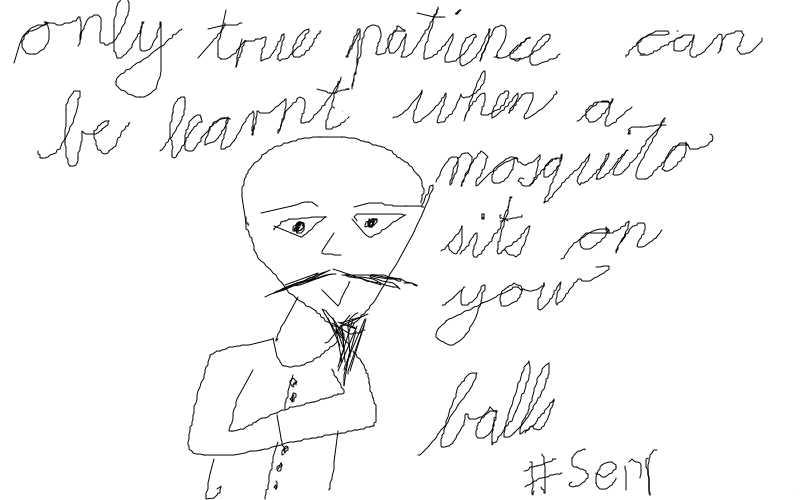 only true patience can
be learnt when a
mosquito
sits on
your
balls